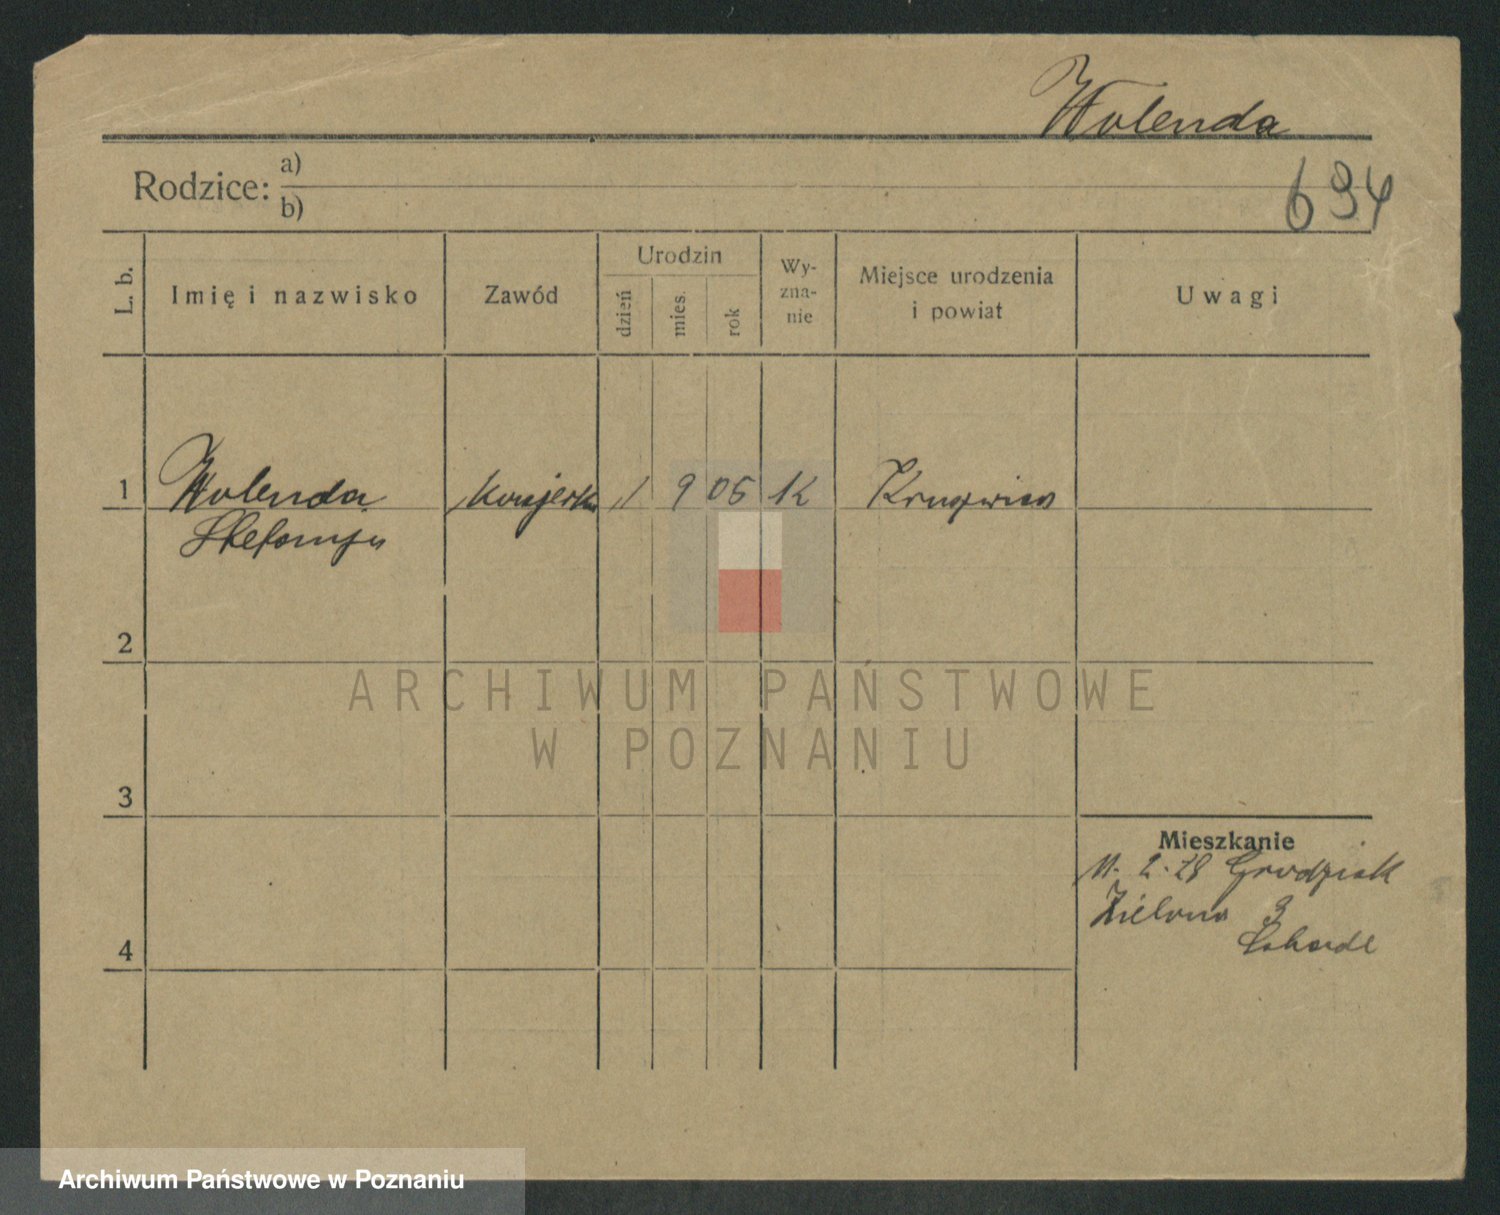 Wolenda
694
Rodzice: a)
b)
L. b.
Imię i nazwisko
Zawód
Urodzin
dzień
mies.
rok
Wy-
zna-
nie
Miejsce urodzenia
i powiat
Uwagi
1 Wolenda 1 9 05 K Kruszwica
Stefanja
2
3
4
Mieszkanie
2.28 Grodzisk
Zielona 3
ARCHIWUM PAŃSTWOWE
W POZNANIU
Archiwum Państwowe w Poznaniu